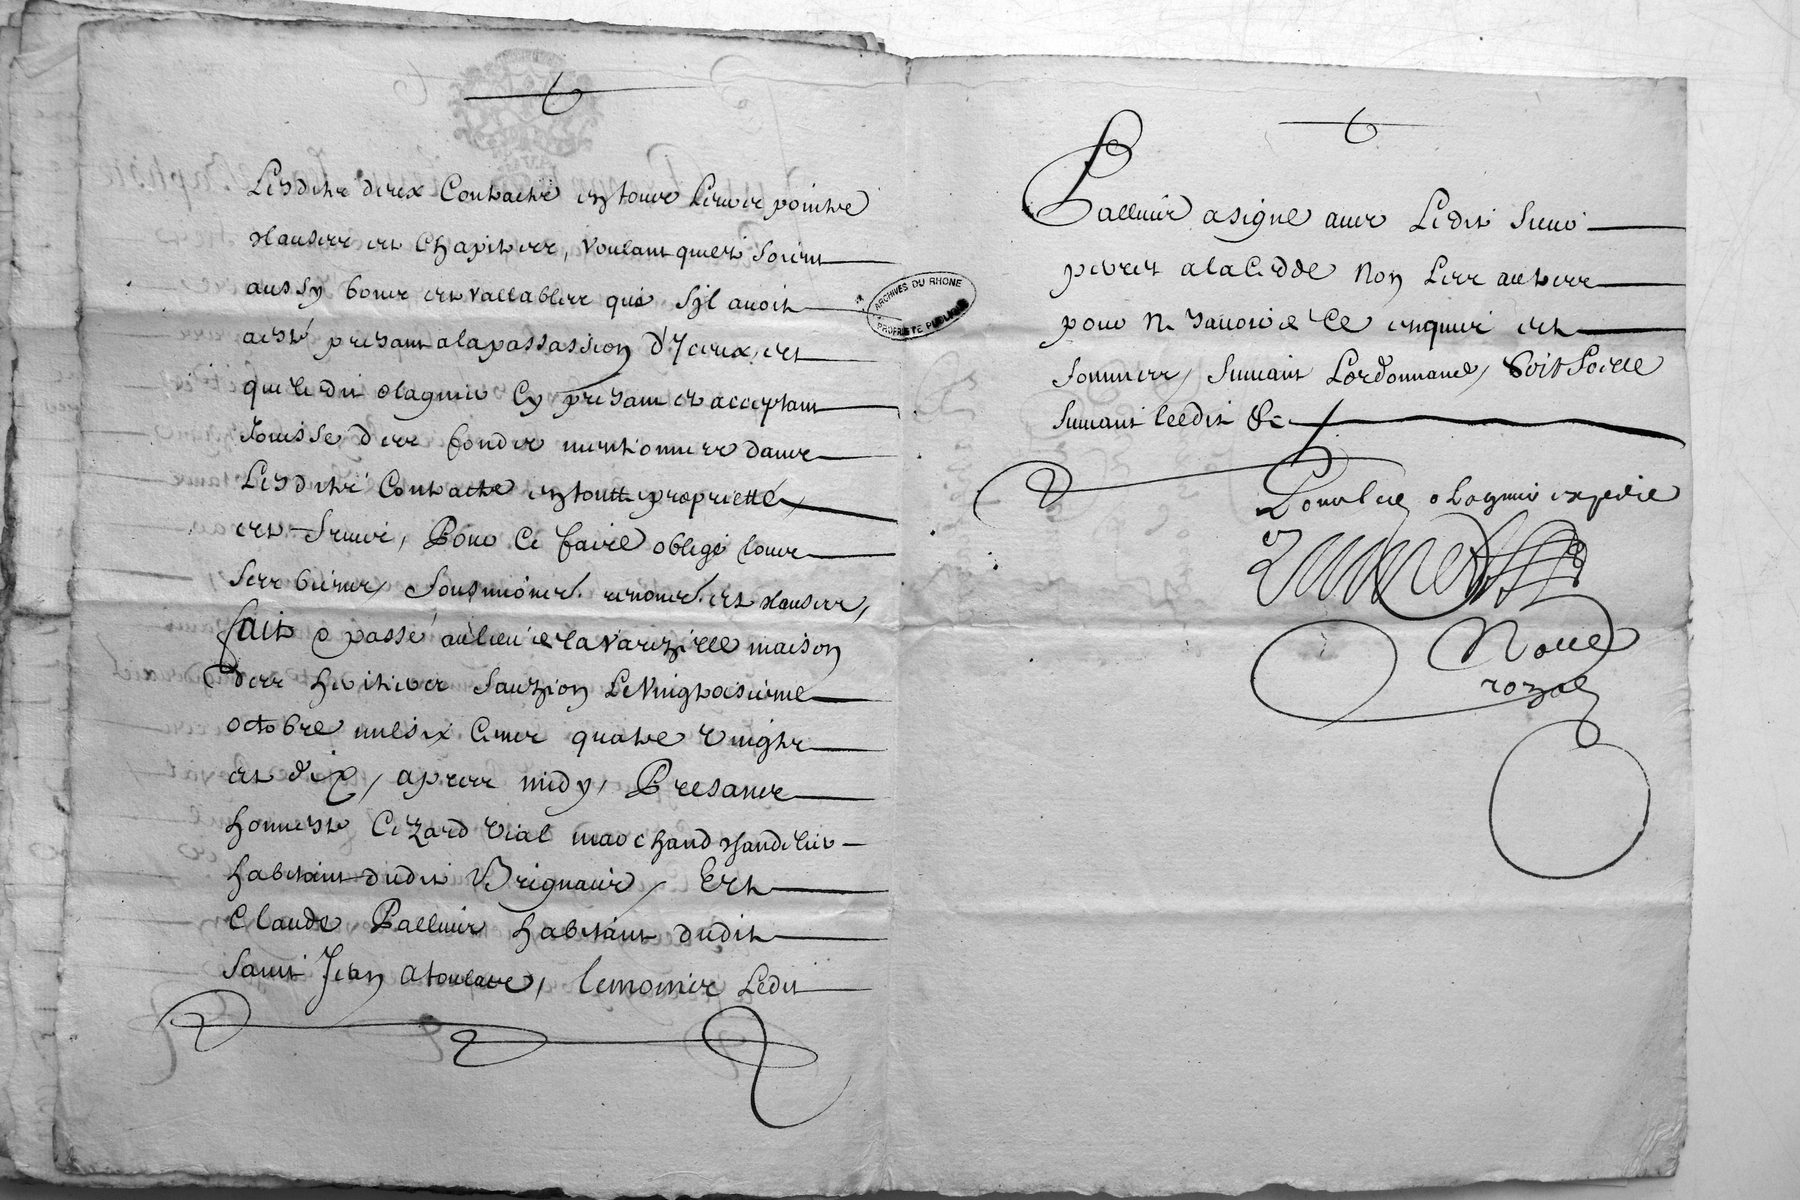 Lesdits deux Contracts en tous leurs points
clauses et chapitres, voulant quils soient
aussy bons et vallables que syl avoit
esté presant a la passassion d'Iceux, et
que ledit olagnier Cy presant et acceptant
Jouisse des fonds mentionnes dans
Lesdits Contracts en toutte proprietté,
et fruis, Pour Ce faire obligé tous
ses biens, sousmions. renons. et clauses,
fait & passé au lieu de la varizelle maison
des heritiers sauzion Le Vingtroisieme
octobre mil six Cens quatre vingts
et dix, apres midy, Presans
honneste Cezard vial marchand chandelier
habitant dudit Brignais, Et
Claude Ballmir habitant dudit
saint Jean atoulas, temoins Ledit
Ballmir a signé avec Ledit sieur
a la Cedde Non Les autres
pour ne savoir de Ce enquis et
sommes, suivant Lordonnance, soit scelle
suivant Ledit &c
Pour led olagnier expedie
ARCHIVES DU RHONE
PROPRIETE PUBLIQUE
Noue
royal